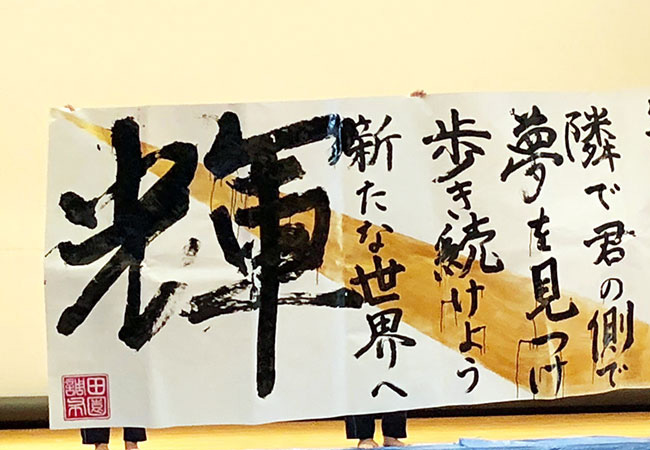 隣で君の側で
夢を見つけ
歩き続けよう
新たな世界へ
輝
田園